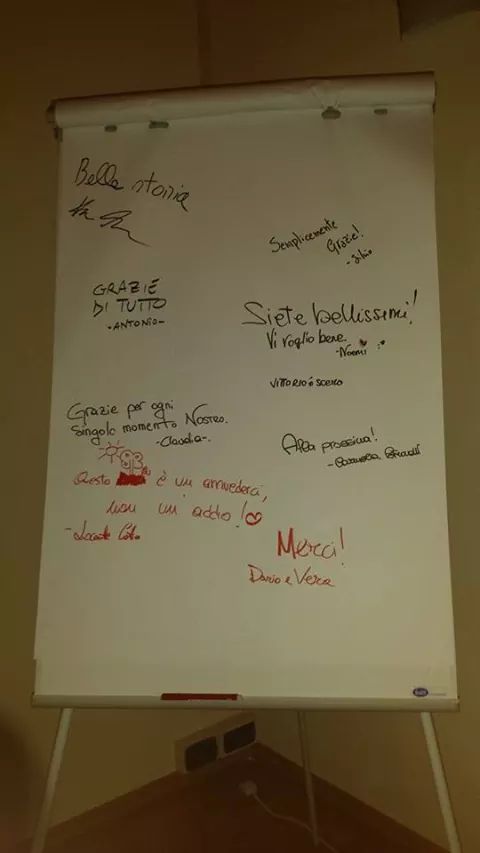 Belle storie
Semplicemente
Grazie!
- Silvio
GRAZIE
DI TUTTO
- ANTONIO -
Siete bellissimi!
Vi voglio bene.
- Noemi
VITTORIO
Grazie per ogni
singolo momento Nostro.
- Claudia -.
Alla prossima!
Questo è un arrivederci,
non un addio!
Merci!
Dario e Vera